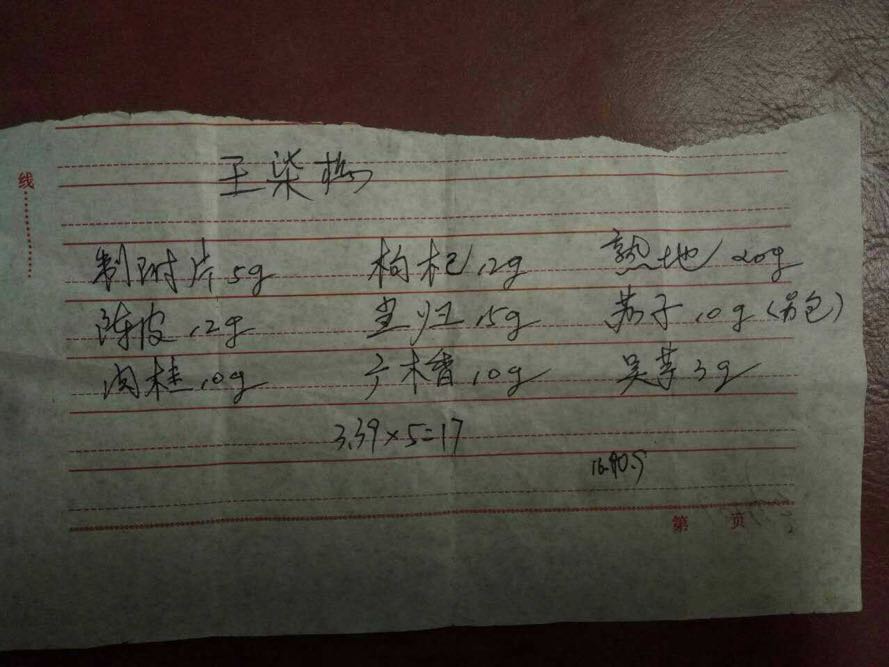 线
王柒梅
制附片5g 枸杞12g 熟地20g
陈皮12g 当归15g 苏子10g(另包)
肉桂10g 广木香10g 吴茱3g
3.39×5=17
第 页